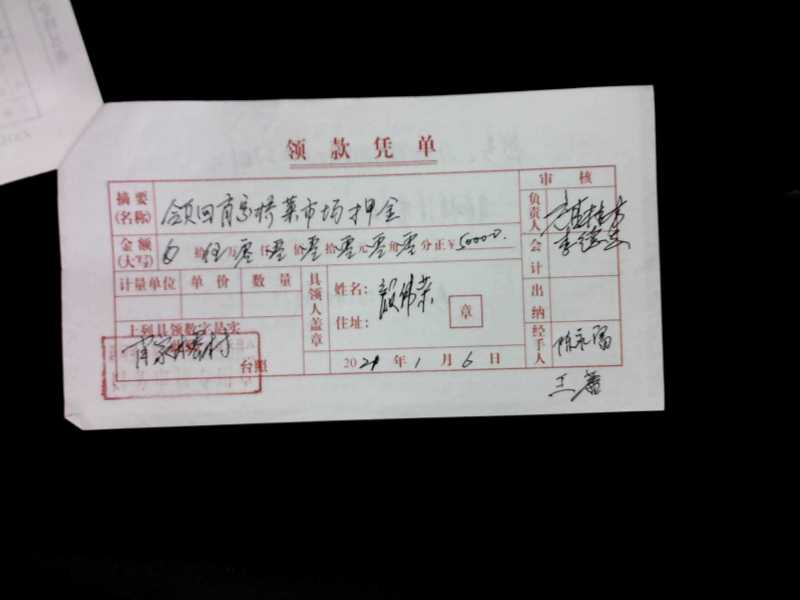 领款凭单
审核
摘要(名称) 领回肖家桥菜市场押金
负责人
金额(大写) 拾伍万零仟零佰零拾零元零角零分正¥50000.
会计 李
计量单位 单价 数量
具领人盖章
姓名: 殷伟荣
住址:
章
出纳
上列具领数字是实
肖家桥村
台照
2021年1月6日
经手人 陈永福
王